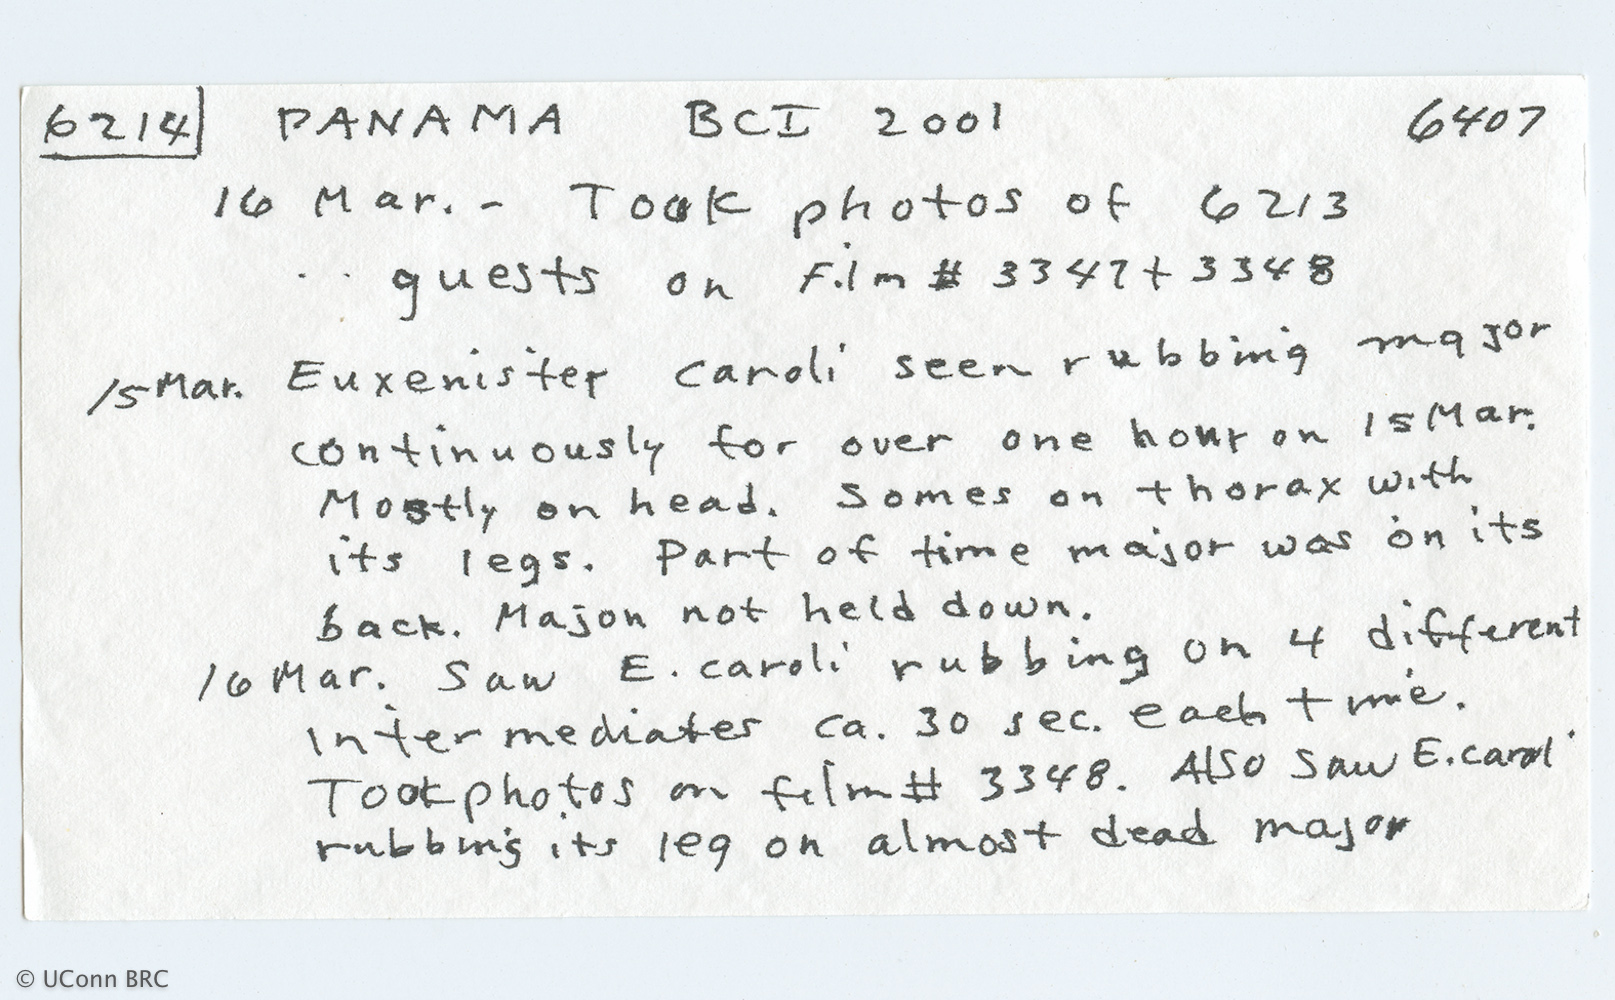 6214 PANAMA BCI 2001 6407
16 Mar. - Took photos of 6213
guests on film # 3347 + 3348
15 Mar. Euxenister caroli seen rubbing major
continuously for over one hour on 15 Mar.
Mostly on head. Somes on thorax with
its legs. Part of time major was on its
back. Major not held down.
16 Mar. Saw E. caroli rubbing on 4 different
intermediates ca. 30 sec. each time.
Took photos on film # 3348. Also saw E. caroli
rubbing its leg on almost dead major
© UConn BRC